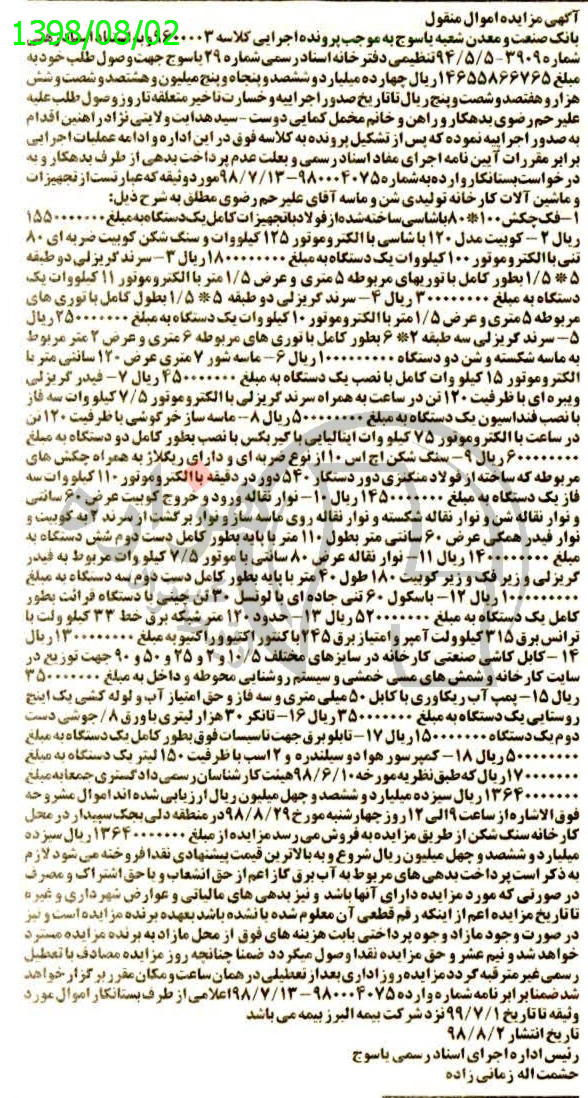 1398/08/02
آگهی مزایده اموال منقول
بانک صنعت و معدن شعبه یاسوج به موجب پرونده اجرایی کلاسه ۹۶۰۰۰۰۳ و به استناد اسناد رهنی
شماره ۳۹۰۹-۹۴/۵/۵ تنظیمی دفترخانه اسناد رسمی شماره ۲۹ یاسوج جهت وصول طلب خود به
مبلغ ۱۴۶۵۵۸۶۶۷۶۵ ریال چهارده میلیارد و ششصد و پنجاه و پنج میلیون و هشتصد و شصت و شش
هزار و هفتصد و شصت و پنج ریال تا تاریخ صدور اجراییه و خسارت تاخیر متعلقه تا روز وصول طلب علیه
علیرحم رضوی بدهکار و راهن و خانم مخمل کمایی دوست - سید هدایت ولایتی نژاد راهنین اقدام
به صدور اجراییه نموده که پس از تشکیل پرونده به کلاسه فوق در این اداره و ادامه عملیات اجرایی
برابر مقررات آیین نامه اجرای مفاد اسناد رسمی و بعلت عدم پرداخت بدهی از طرف بدهکار و به
درخواست بستانکار وارده به شماره ۹۸۰۰۰۴۰۷۵-۹۸/۷/۱۳ مورد وثیقه که عبارتست از تجهیزات
و ماشین آلات کارخانه تولیدی شن و ماسه آقای علیرحم رضوی مطلق به شرح ذیل:
۱- فک چکش ۱۰۰*۸۰ با شاسی ساخته شده از فولاد با تجهیزات کامل یک دستگاه به مبلغ ۱۵۵۰۰۰۰۰۰۰
ریال ۲- کوبیت مدل ۱۲۰ با شاسی با الکتروموتور ۱۲۵ کیلووات و سنگ شکن کوبیت ضربه ای ۸۰
تنی با الکتروموتور ۱۰۰ کیلووات یک دستگاه به مبلغ ۱۸۰۰۰۰۰۰۰۰ ریال ۳- سرند گریزلی دو طبقه
۵*۱/۵ بطور کامل با توریهای مربوطه ۵ متری و عرض ۱/۵ متر با الکتروموتور ۱۱ کیلووات یک
دستگاه به مبلغ ۳۰۰۰۰۰۰۰۰ ریال ۴- سرند گریزلی دو طبقه ۵*۱/۵ بطول کامل با توری های
مربوطه ۵ متری و عرض ۱/۵ متر با الکتروموتور ۱۰ کیلووات یک دستگاه به مبلغ ۲۵۰۰۰۰۰۰۰ ریال
۵- سرند گریزلی سه طبقه ۲*۶ بطور کامل با توری های مربوطه ۶ متری و عرض ۲ متر مربوط
به ماسه شکسته و شن دو دستگاه ۱۰۰۰۰۰۰۰۰۰ ریال ۶- ماسه شور ۷ متری عرض ۱۲۰ سانتی متر با
الکتروموتور ۱۵ کیلووات کامل با نصب یک دستگاه به مبلغ ۴۵۰۰۰۰۰۰۰ ریال ۷- فیدر گریزلی
ویبره ای با ظرفیت ۱۲۰ تن در ساعت به همراه سرند گریزلی با الکتروموتور ۷/۵ کیلووات سه فاز
با نصب فنداسیون یک دستگاه به مبلغ ۵۰۰۰۰۰۰۰۰ ریال ۸- ماسه ساز خرگوشی با ظرفیت ۱۲۰ تن
در ساعت با الکتروموتور ۷۵ کیلووات ایتالیایی با گیربکس با نصب بطور کامل دو دستگاه به مبلغ
۶۰۰۰۰۰۰۰۰ ریال ۹- سنگ شکن اچ اس ۱۰ از نوع ضربه ای و دارای ریگلاژ به همراه چکش های
مربوطه که ساخته از فولاد منگنزی دور دستگار ۵۴۰ دور در دقیقه با الکتروموتور ۱۱۰ کیلووات سه
فاز یک دستگاه به مبلغ ۱۴۵۰۰۰۰۰۰۰ ریال ۱۰- نوار نقاله ورود و خروج کوبیت عرض ۶۰ سانتی
و نوار نقاله شن و نوار نقاله شکسته و نوار نقاله روی ماسه ساز و نوار برگشت از سرند ۲ به کوبیت و
نوار فیدر همگی عرض ۶۰ سانتی متر بطول ۱۱۰ متر با پایه بطور کامل دست دوم شش دستگاه به
مبلغ ۱۴۰۰۰۰۰۰۰۰ ریال ۱۱- نوار نقاله عرض ۸۰ سانتی با موتور ۷/۵ کیلووات مربوط به فیدر
گریزلی و زیر فک و زیر کوبیت ۱۸۰ طول ۴۰ متر با پایه بطور کامل دست دوم سه دستگاه به مبلغ
۱۰۰۰۰۰۰۰۰۰ ریال ۱۲- باسکول ۶۰ تنی جاده ای با لودسل ۳۰ تن چینی با دستگاه قرائت بطور
کامل یک دستگاه به مبلغ ۵۲۰۰۰۰۰۰۰ ریال ۱۳- حدود ۱۲۰ متر شبکه برق خط ۳۳ کیلو ولت با
ترانس برق ۳۱۵ کیلوولت آمپر و امتیاز برق ۲۴۵ با کنتور اکتیو و راکتیو به مبلغ ۱۳۰۰۰۰۰۰۰۰ ریال
۱۴- کابل کاشی صنعتی کارخانه در سایزهای مختلف ۱۰/۵ و ۲ و ۲۵ و ۵۰ و ۹۰ جهت توزیع در
سایت کارخانه و شمش های مسی خمشی و سیستم روشنایی محوطه و داخل به مبلغ ۳۵۰۰۰۰۰۰۰
ریال ۱۵- پمپ آب ریکاوری با کابل ۵۰ میلی متری و سه فاز و حق امتیاز آب و لوله کشی یک اینچ
روستایی یک دستگاه به مبلغ ۳۵۰۰۰۰۰۰۰ ریال ۱۶- تانکر ۳۰ هزار لیتری با ورق ۸/ جوشی دست
دوم یک دستگاه ۱۵۰۰۰۰۰۰۰ ریال ۱۷- تابلو برق جهت تاسیسات فوق بطور کامل یک دستگاه به مبلغ
۵۰۰۰۰۰۰۰۰ ریال ۱۸- کمپرسور هوا دو سیلندره و ۲ اسب با ظرفیت ۱۵۰ لیتر یک دستگاه به مبلغ
۱۷۰۰۰۰۰۰ ریال که طبق نظریه مورخه ۹۸/۶/۱۰ هیئت کارشناسان رسمی دادگستری جمعا به مبلغ
۱۳۶۴۰۰۰۰۰۰۰ ریال سیزده میلیارد و ششصد و چهل میلیون ریال ارزیابی شده اند اموال مشروحه
فوق الاشاره از ساعت ۹ الی ۱۲ روز چهارشنبه مورخ ۹۸/۸/۲۹ در منطقه دلی بجک سپیدار در محل
کارخانه سنگ شکن از طریق مزایده به فروش می رسد مزایده از مبلغ ۱۳۶۴۰۰۰۰۰۰۰ ریال سیزده
میلیارد و ششصد و چهل میلیون ریال شروع و به بالاترین قیمت پیشنهادی نقدا فروخته می شود لازم
به ذکر است پرداخت بدهی های مربوط به آب برق گاز اعم از حق انشعاب و یا حق اشتراک و مصرف
در صورتی که مورد مزایده دارای آنها باشد و نیز بدهی های مالیاتی و عوارض شهرداری و غیره
تا تاریخ مزایده اعم از اینکه رقم قطعی آن معلوم شده یا نشده باشد بعهده برنده مزایده است و نیز
در صورت وجود مازاد وجوه پرداختی بابت هزینه های فوق از محل مازاد به برنده مزایده مسترد
خواهد شد و نیم عشر و حق مزایده نقدا وصول میگردد ضمنا چنانچه روز مزایده مصادف با تعطیل
رسمی غیر مترقبه گردد مزایده روز اداری بعد از تعطیلی در همان ساعت و مکان مقرر برگزار خواهد
شد ضمنا برابر نامه شماره وارده ۹۸۰۰۰۴۰۷۵-۹۸/۷/۱۳ اعلامی از طرف بستانکار اموال مورد
وثیقه تا تاریخ ۹۹/۷/۱ نزد شرکت بیمه البرز بیمه می باشد
تاریخ انتشار ۹۸/۸/۲
رئیس اداره اجرای اسناد رسمی یاسوج
حشمت اله زمانی زاده